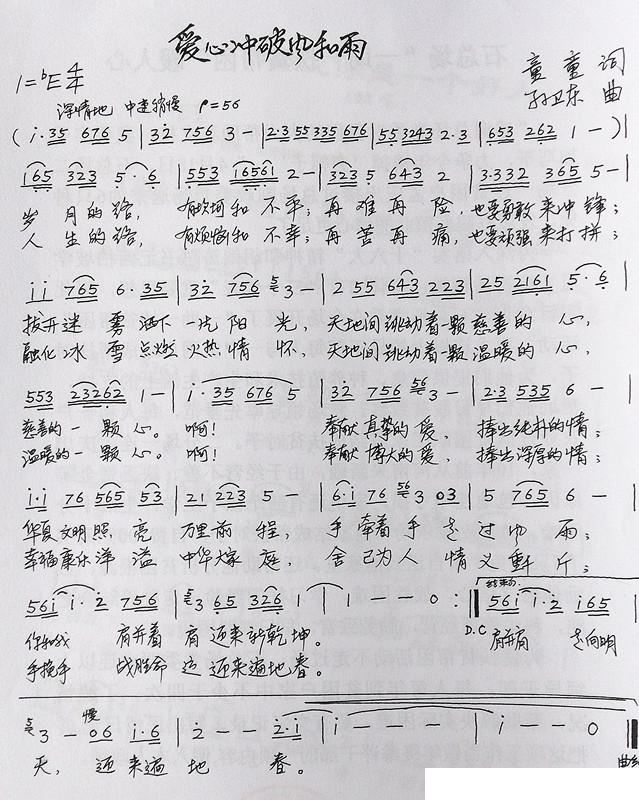 爱心冲破风和雨
1=♭E 4/4
童 童 词
孙卫东 曲
深情地 中速稍慢 ♩=56
( i·35 676 5 | 32 756 3 - | 2·3 55335 676 | 55 3243 2·3 | 653 262 1 - ) |
165 323 5·6 | 553 16561 2 - | 323 5 643 2 | 3·332 365 5 - |
岁 月的路, 有坎坷和 不平; 再 难 再 险, 也要勇敢 来冲 锋;
人 生的路, 有烦恼和 不幸; 再 苦 再 痛, 也要顽强 来打 拼;
i i 765 6·35 | 32 756 3 - | 2 55 643 223 | 25 2161 5·6 |
拨开迷 雾 洒下 一片 阳 光, 天地间 跳动着 一颗 慈善的 心,
融化冰 雪 点燃 火热 情 怀, 天地间 跳动着 一颗 温暖的 心,
553 23262 1 - | i·35 676 5 | 32 756 56 3 - | 2·3 535 6 - |
慈善的 一 颗 心。 啊! 奉献 真挚的 爱, 捧出 纯朴的 情;
温暖的 一 颗 心。 啊! 奉献 博大的 爱, 捧出 深厚的 情;
i·i 76 565 53 | 21 223 5 - | 6·i 76 56 3 03 | 5 765 6 - |
华夏 文明 照 亮 万里 前 程, 手 牵着 手 走 过 雨;
幸福 康乐 洋 溢 中华 大家 庭, 舍 己为 人 情 义 重千 斤;
56i i·2 756 | 5 3 65 326 1 | 1 - - 0 :‖ 56i i·2 i65 |
结束句
D.C
你和我 肩并着 肩 迎来 新乾坤。 肩并肩 走向明
手挽手 战胜命 运 迎来 遍地 春。
5 3 - 06 i·6 | 2 - - 2·i | i - - - | i - - 0 ‖
慢
天, 迎 来遍 地 春。